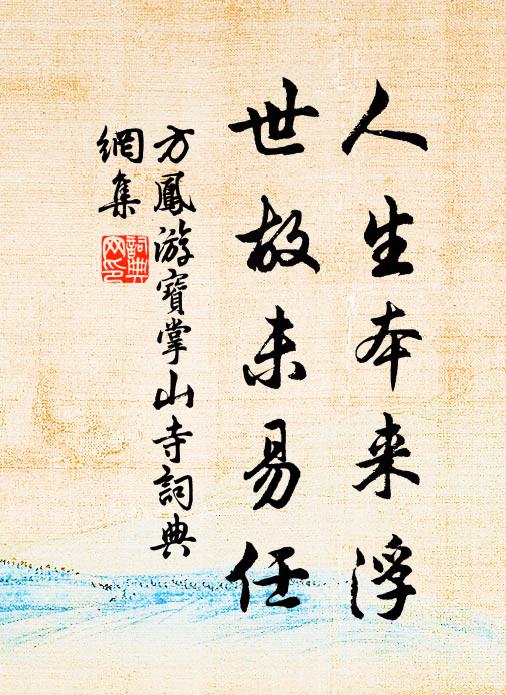 人生本来浮
世故未易任
方鳳游寶掌山寺詞典
網集
詞典
网印